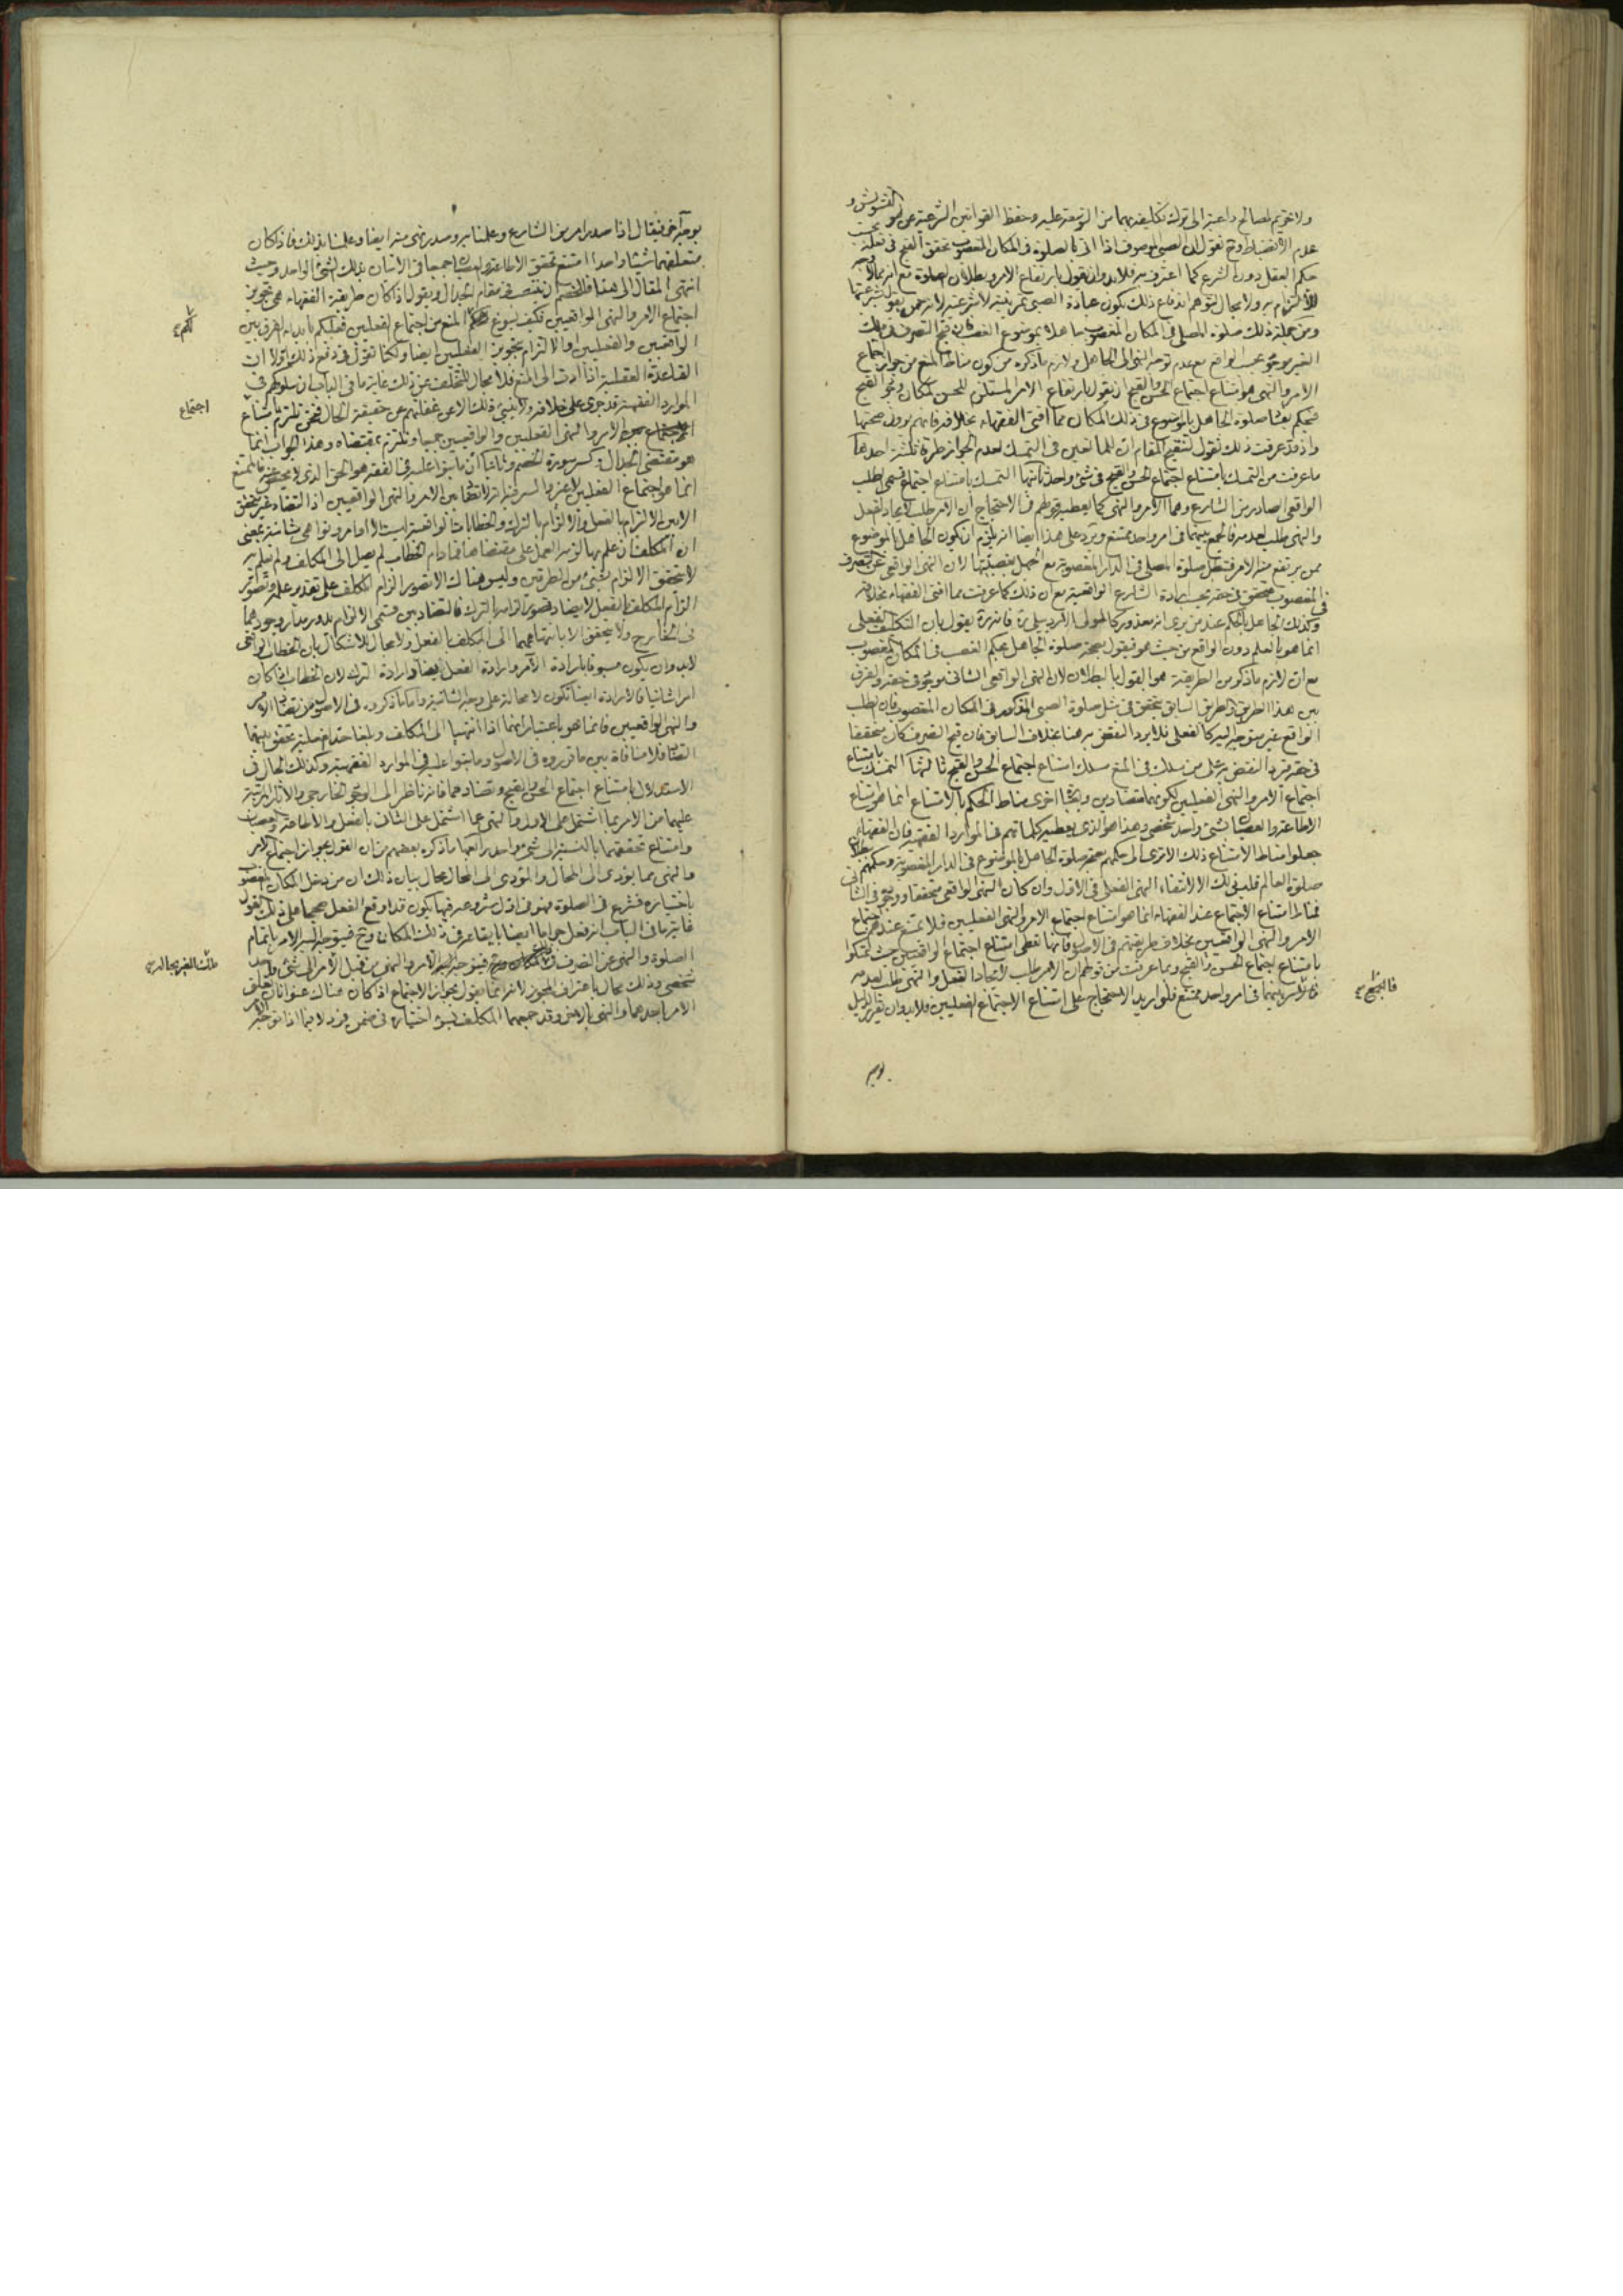 ولا تحريم لمصالح داعية الى ترك تكليفه بهما من التوسعة عليه وحفظ القوانين الشرعية عن التشويش و
عدم الانضباط وح نقول ان الصبى الموصوف اذا اتى بالصلوة فى المكان المغصوب تحقق القبح فى فعله بحسب
حكم العقل دون الشرع كما اعترف به فلا بد وان يقول بارتفاع الامر وبطلان الصلوة مع انه مما لا وجه
للالتزام به ولا مجال لتوهم اندفاع ذلك بكون عبادة الصبى تمرينية لا شرعية لانه ممن يقول بشرعيتها
ومن جملة ذلك صلوة المصلى فى المكان المغصوب جاهلا بموضوع الغصب فان قبح التصرف فى ملك
الغير موجود بحسب الواقع مع عدم توجه النهى الى الجاهل ولازم ما ذكره من كون مناط المنع من جواز اجتماع
الامر والنهى هو امتناع اجتماع الحسن والقبح ان يقول بارتفاع الامر المستلزم للحسن لمكان وجود القبح
فيحكم بفساد صلوة الجاهل بالموضوع فى ذلك المكان مما افتى الفقهاء بخلافه فانهم يرون صحتها
واذ قد عرفت ذلك نقول لتنقيح المقام ان للمانعين فى التمسك لعدم الجواز طرقا ثلثة احدها
ما عرفت من التمسك بامتناع اجتماع الحسن والقبح فى شئ واحد ثانيها التمسك بامتناع اجتماع قسمى الطلب
الواقعى الصادر من الشارع وهما الامر والنهى كما يعطيه قولهم فى الاحتجاج ان الامر طلب لايجاد الفعل
والنهى طلب لعدمه فالجمع بينهما فى امر واحد ممتنع ويرد على هذا ايضا انه يلزم ان يكون الجاهل بالموضوع
ممن يرتفع عنه الامر فتبطل صلوة المصلى فى الدار المغصوبة مع الجهل بغصبيتها لان النهى الواقعى عن التصرف
فى المغصوب متحقق فى حقه بحسب ارادة الشارع الواقعية مع ان ذلك كما عرفت مما افتى الفقهاء بخلافه
وكذلك الجاهل بالحكم عند من يرى انه معذور كالمولى الاردبيلى ره فانه ره يقول بان التكليف الفعلى
انما هو بالعلم دون الواقع من حيث هو فيقول بصحة صلوة الجاهل بحكم الغصب فى المكان المغصوب
مع ان لازم ما ذكر من الطريقة هو القول بالبطلان لان النهى الواقعى الشانى موجود فى حقه والفرق
بين هذا الطريق والطريق السابق يتحقق فى مثل صلوة الصبى المذكور فى المكان المغصوب فان الطلب
الواقع غير متوجه اليه كالفعلى فلا يرد النقض به هنا بخلاف السابق فان قبح التصرف كان متحققا
فى حقه فيرد النقض به على من سلك فى المنع مسلك امتناع اجتماع الحسن والقبح ثالثها التمسك بامتناع
اجتماع الامر والنهى الفعليين لكونهما متضادين وبعبارة اخرى مناط الحكم بالامتناع انما هو امتناع
الاطاعة والعصيان بشئ واحد شخصى وهذا هو الذى يعطيه كلماتهم فى الموارد الفقهية فان الفقهاء
جعلوا مناط الامتناع ذلك الا ترى الى حكمهم بصحة صلوة الجاهل بالموضوع فى الدار المغصوبة وحكمهم ببطلان
صلوة العالم فليس ذلك الا لانتفاء النهى الفعلى فى الاول وان كان النهى الواقعى متحققا ووجوده فى الثانى
فمناط امتناع الاجتماع عند الفقهاء انما هو امتناع اجتماع الامر والنهى الفعليين فلا يمتنع عندهم اجتماع
الامر والنهى الواقعيين بخلاف طريقتهم فى الاصول فانها تعطى امتناع اجتماع الواقعيين حيث تمسكوا
بامتناع اجتماع الحسن والقبح وبما عرفت من قولهم ان الامر طلب لايجاد الفعل والنهى طلب لعدمه
بينهما فى امر واحد ممتنع فلو اريد الاحتجاج على امتناع الاجتماع الفعليين فلا بد وان يقرر الدليل
فالجمع
بوجه
بوجه آخر فيقال اذا صدر امر من الشارع وعلمنا به وصدر نهى منه ايضا وعلمنا بذلك فاذا كان
متعلقهما شيئا واحدا امتنع تحقق الاطاعة والعصيان جميعا فى الاتيان بذلك الشئ الواحد وحيث
انتهى المقال الى هنا فللخصم ان ينتصب فى مقام الجدال ويقول اذا كان طريقة الفقهاء هى تجويز
اجتماع الامر والنهى الواقعيين فكيف يسوغ المنع من اجتماع الفعليين فعليكم بابداء الفرق بين
لكم
الواقعيين والفعليين او الالتزام بتجويز الفعليين ايضا ولكنا نقول فى دفع ذلك اولا ان
القاعدة العقلية اذا ادت الى المنع فلا مجال للتخلف عن ذلك غاية ما فى الباب ان سلوكهم فى
الموارد الفقهية قد جرى على خلافه ولا ينبئ ذلك الا عن غفلتهم عن حقيقة الحال فنحن نلتزم بامتناع
اجتماع
الامر والنهى الفعليين والواقعيين جميعا ونلتزم بمقتضاه وهذا الجواب انما
هو مقتضى الجدال وكسر سورة الخصم وثانيا ان ما بنوا عليه فى الفقه هو الحق الذى لا محيص عنه فالممتنع
انما هو اجتماع الفعليين لا غير والسر فيه انه لا تضاد بين الامر والنهى الواقعيين اذ التضاد غير متحقق
الا بين الالزام بالفعل والالزام بالترك والخطابات الواقعية ليست الا اوامر ونواهى شانية بمعنى
ان المكلف ان علم بها لزمه العمل على مقتضاها فما دام الخطاب لم يصل الى المكلف ولم يعلم به
لا يتحقق الالزام بشئ من الطرفين وليس هناك الا تصور الزام المكلف على تقدير علمه وتصور
الزام المكلف بالفعل لا يضاد تصور الزامه بالترك فالتضاد بين قسمى الالزام يدور مدار وجودهما
فى الخارج ولا يتحقق الا بانتهائهما الى المكلف بالفعل ولا مجال للاشكال بان الخطاب الواقعى
لا بد وان يكون مسبوقا بارادة الامر وارادة الفعل ايضا وارادة الترك لان الخطاب اذا كان
امرا شانيا فالارادة ايضا تكون لا محالة على وجه الشانية واما ما ذكروه فى الاصول من تضاد الامر
والنهى الواقعيين فانما هو باعتبار انهما اذا انتهيا الى المكلف وبلغا حد الفعلية تحقق بينهما
التضاد فلا منافاة بين ما قرروه فى الاصول وما بنوا عليه فى الموارد الفقهية وكذلك الحال فى
الاستدلال بامتناع اجتماع الحسن والقبح وتضادهما فانه ناظر الى الوجود الخارجى والآثار المترتبة
عليهما من الامر بما اشتمل على الاول والنهى عما اشتمل على الثانى بالفعل والاطاعة والعصيان
وامتناع تحققهما بالنسبة الى شئ واحد رابعها ما ذكره بعضهم من ان القول بجواز اجتماع الامر
والنهى مما يؤدى الى المحال والمؤدى الى المحال محال بيان ذلك ان من دخل المكان المغصوب
باختياره فشرع فى الصلوة فهو فى اول شروعه فيها يكون قد اوقع الفعل صحيحا على ذلك القول
غاية ما فى الباب انه فعل حراما ايضا بايقاعه فى ذلك المكان وح فيتوجه اليه الامر باتمام
الصلوة والنهى عن التصرف فى فيتوجه اليه الامر والنهى من قبل الآمر الى شئ واحد
ملك الغير بحاله
شخصى وذلك محال باعتراف المجوز لانه انما يقول بجواز الاجتماع اذا كان هناك عنوانان تعلق
الامر باحدهما والنهى بالاخر وقد جمعهما المكلف بسوء اختياره فى ضمن فرد لا فيما اذا توجه الامر